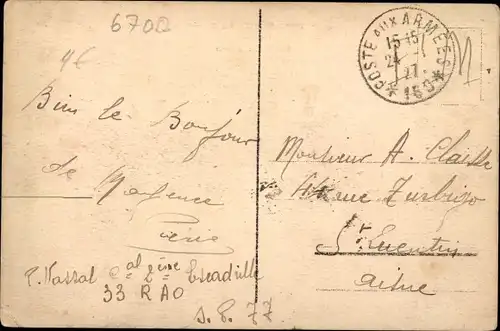 6700
4€
POSTE AUX ARMEES
15 15
24
27
* 150 *
1
Bien le Bonjour
de Mayence
Pierre
P. Vassal Cal 2ème Escadrille
33 RAO
S. P. 77
Monsieur A. Claisse
rue Turbigo
St Quentin
Aisne